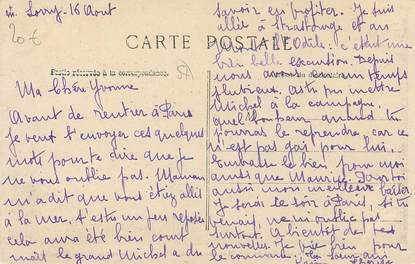 Lorry - 16 Aout
20€
CARTE POSTALE
Partie réservée à la correspondance
Ma Chère Yvonne
Avant de rentrer à Paris
je veux t'envoyer ces quelques
mots pour te dire que je
ne vous oublie pas. Maman
m'a dit que vous étiez allés
à la mer. t'es tu un peu reposée
cela aura été bien court
mais le grand Michel a du
savoir en profiter. Je suis
allée à Strasbourg et au
Odile : c'était une
très belle excursion. Depuis
nous avons eu un temps
pluvieux, as tu pu mettre
Michel à la campagne,
quel bonheur quand tu
pourras le reprendre, car ce
n'est pas gai pour lui.
Embrasse le bien pour moi
ainsi que Maurice. Pour toi
aussi mon meilleur baiser
Je serai le soir à Paris, si tu
venais, ne m'oublie pas
surtout. A bientôt de tes
nouvelles. Je vais bien pour
le